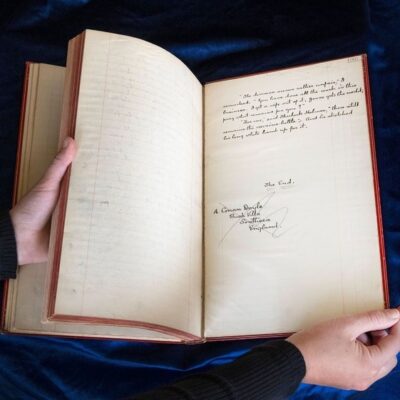 "The division seems rather unfair" I
remarked. "You have done all the work in this
business. I get a wife out of it, Jones gets the credit,
pray what remains for you?"
"For me," said Sherlock Holmes, "there still
remains the cocaine bottle". And he stretched
his long white hand up for it.
The End.
A. Conan Doyle
Bush Villa
Southsea
England.